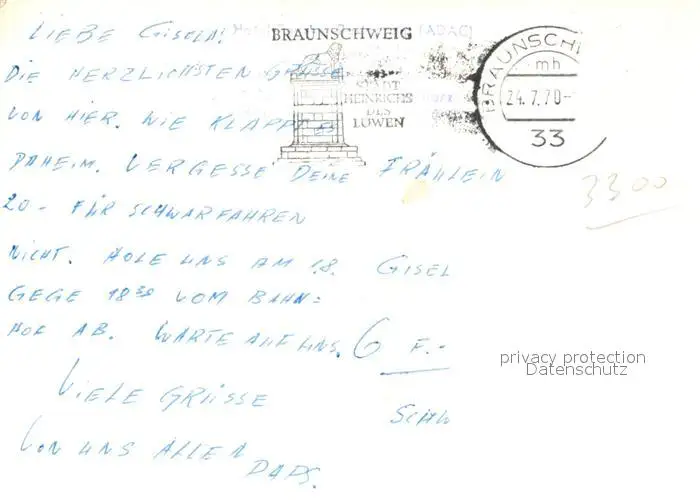 LIEBE GISELA!
BRAUNSCHWEIG
(ADAC)
STADT
HEINRICHS
DES
LÖWEN
BRAUNSCH
mh
24.7.70-
33
DIE HERZLICHSTEN GRÜSSE
VON HIER. WIE KLAPPT ES
DAHEIM. VERGESSE DEINE FRÄHLEIN
3300
20.- FÜR SCHWARFAHREN
NICHT. HOLE UNS AM 1.8. GISEL
GEGE 18³⁰ VOM BAHN=
HOF AB. WARTE AUF UNS. 6 F.-
privacy protection
Datenschutz
VIELE GRÜSSE
SCHW
VON UNS ALLEN
PAPS.